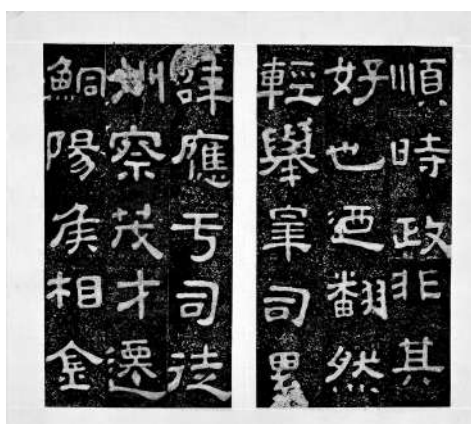 順時政非其
好也迺翻然
輕舉羣司累
辟應亏司徒
州察茂才遷
鮦陽侯相金